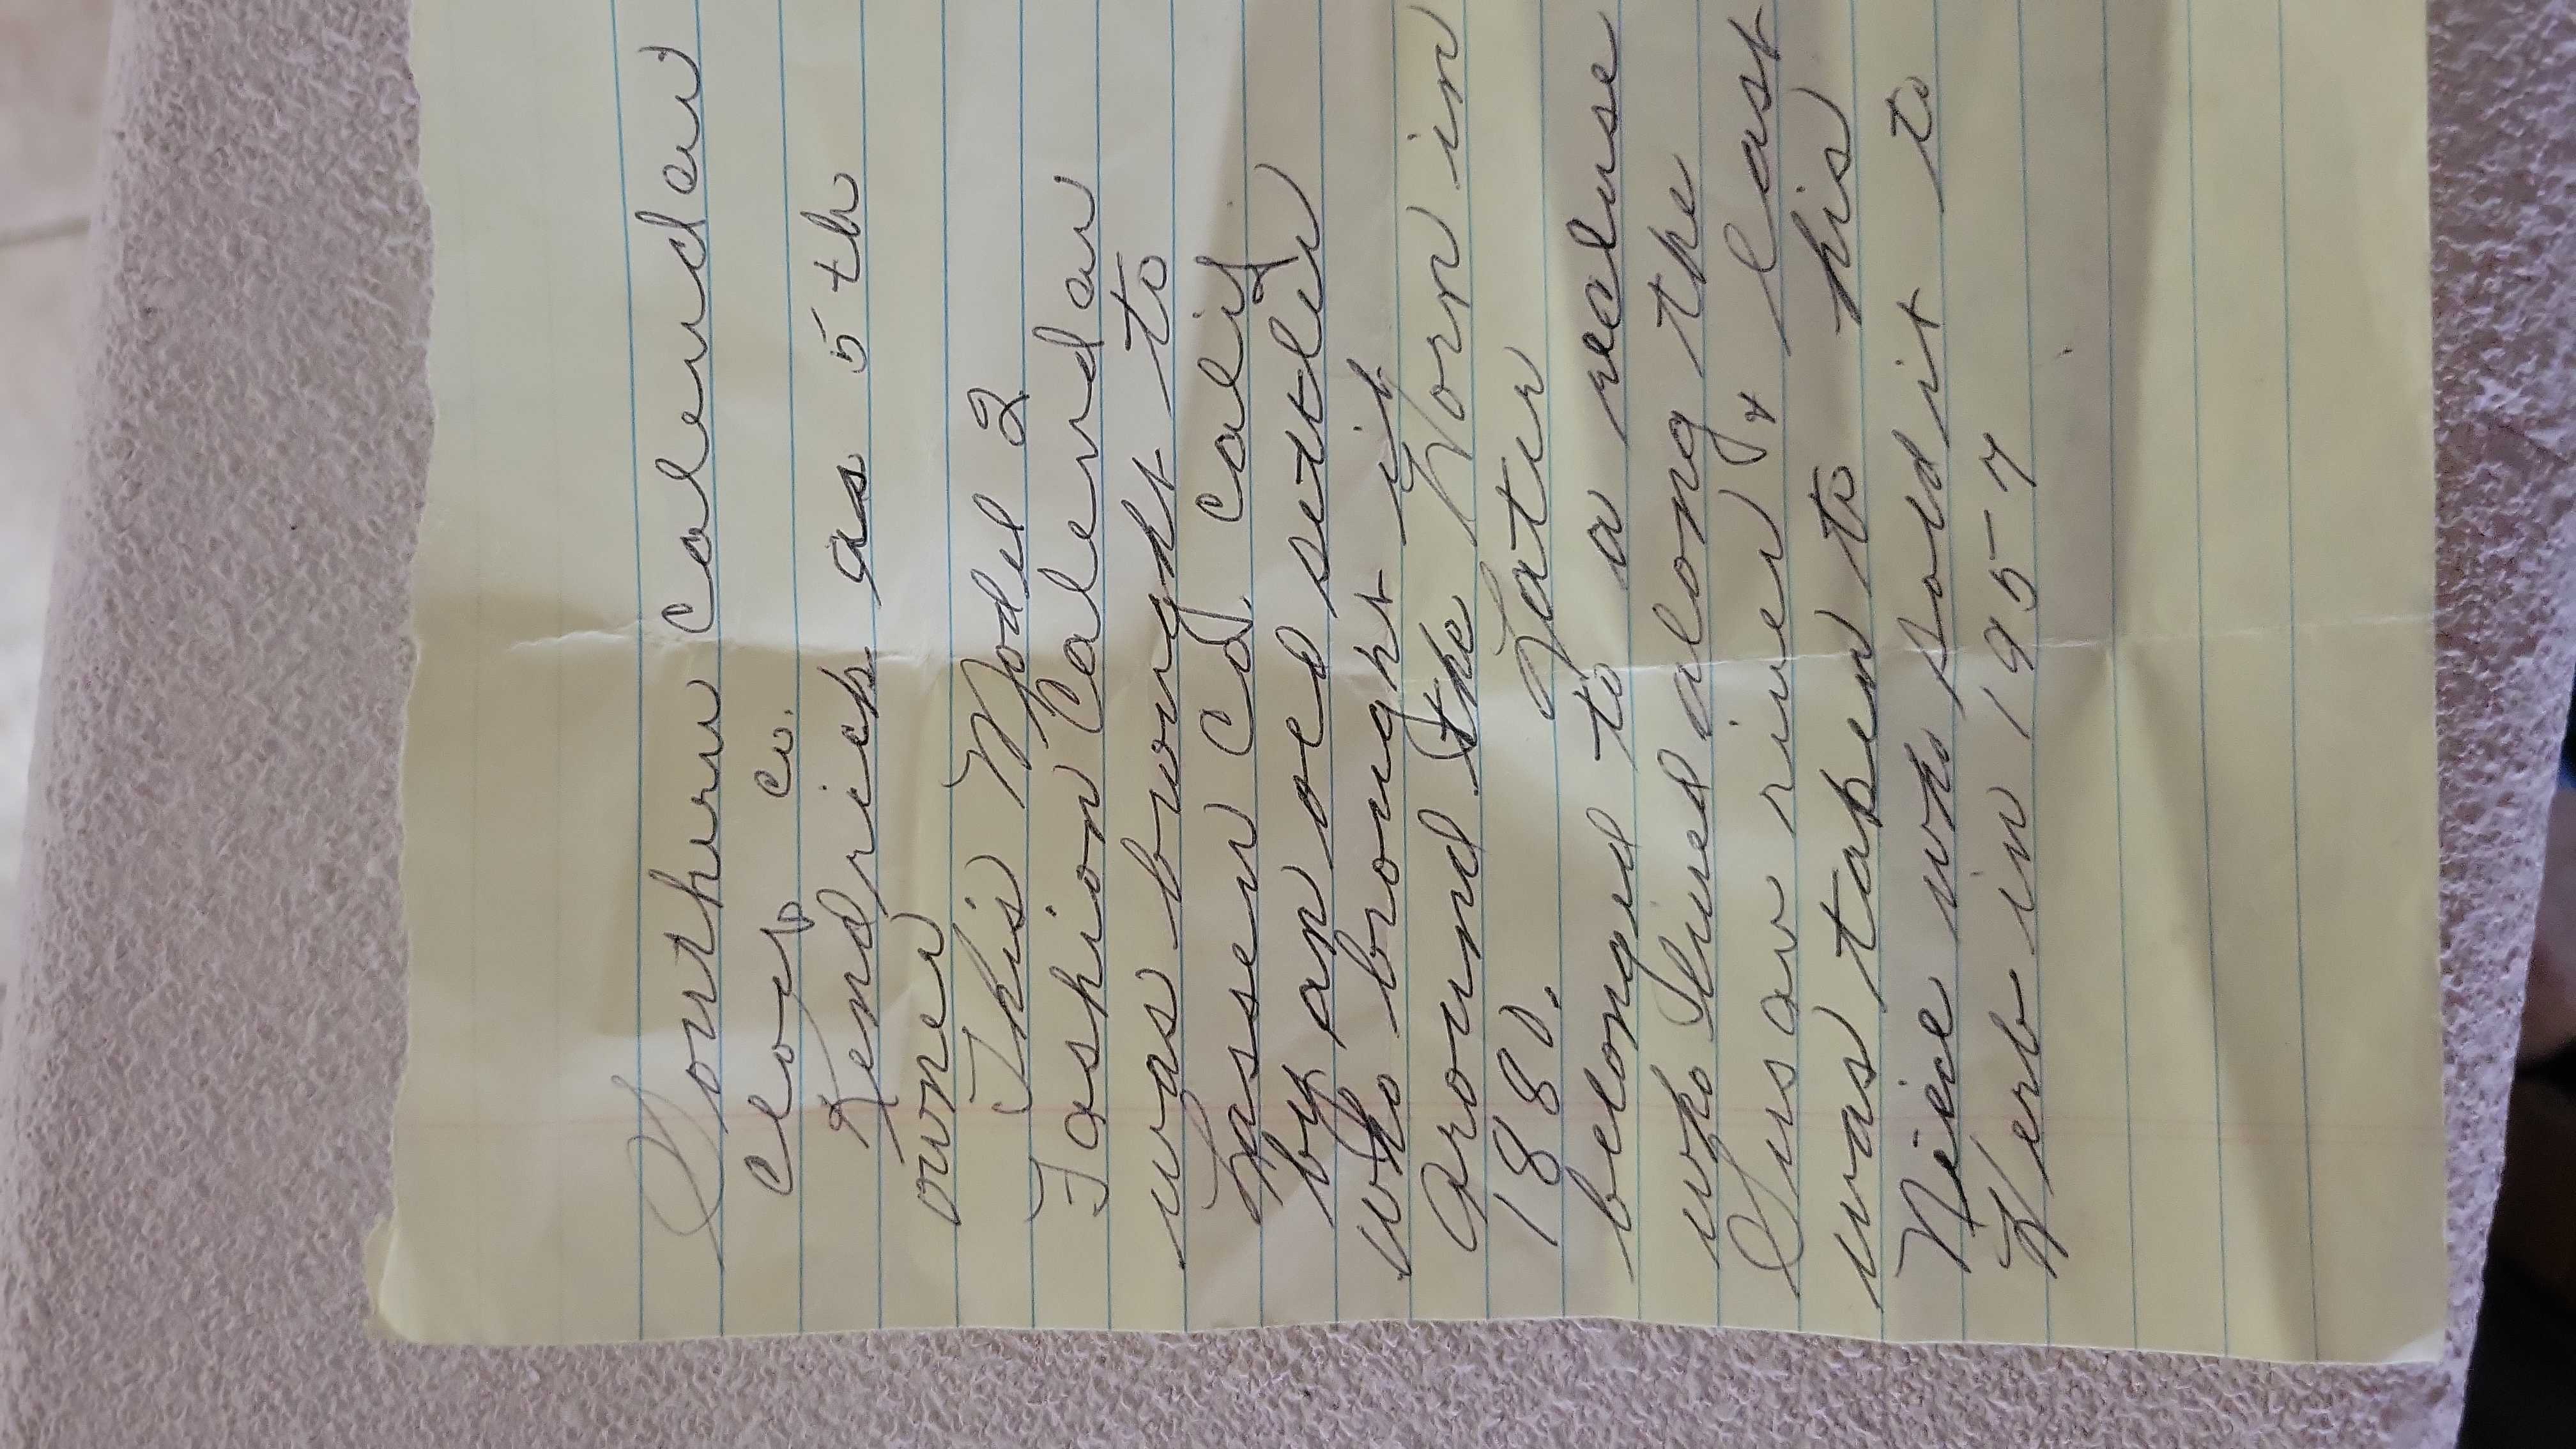 Southern Calendar
Clock Co.
Kendrick as 5th
owner
This Model 2
Fashion Calendar
was brought to
Lassen Co. Calif
by an old settler
who brought it
around the Horn in
1880. Later
belonged to a recluse
who lived along the
Susan river & last
was taken to his
Niece who sold it to
Herb in 1957